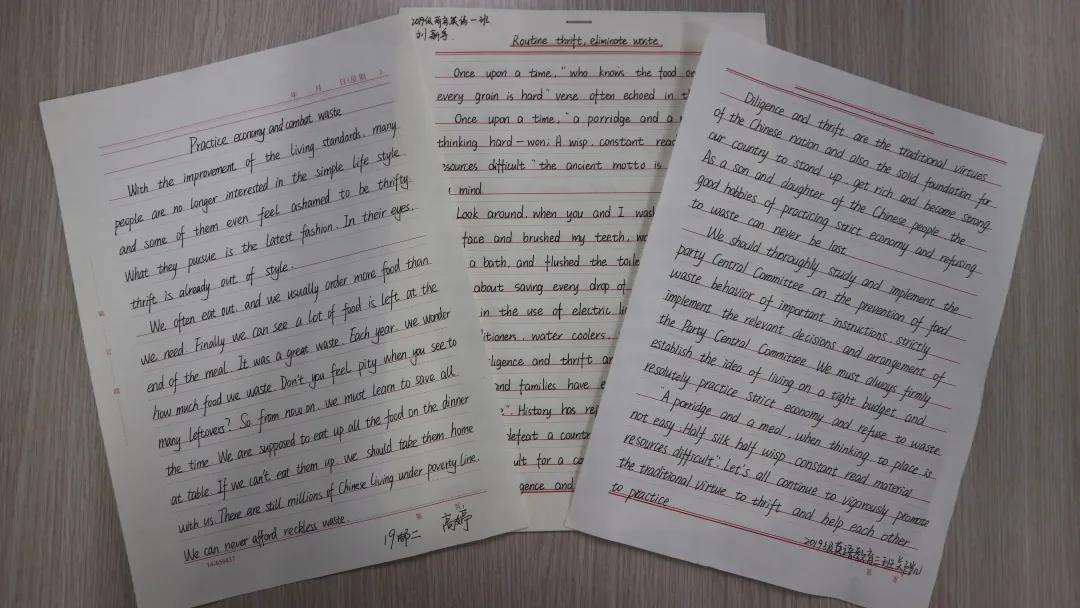 年 月 日(星期 )
Practice economy and combat waste
With the improvement of the living standards, many
people are no longer interested in the simple life style
and some of them even feel ashamed to be thrifty.
What they pursue is the latest fashion. In their eyes,
thrift is already out of style.
We often eat out, and we usually order more food than
we need. Finally we can see a lot of food is left at the
end of the meal. It was a great waste. Each year, we wonder
how much food we waste. Don't you feel pity when you see to
many leftovers? So, from now on, we must learn to save all
the time. We are supposed to eat up all the food on the dinner
at table. If we can't eat them up, we should take them home
with us. There are still millions of Chinese living under poverty line.
We can never afford reckless waste.
第 页
14-609437
2019级商务英语一班
刘
Routine thrift, eliminate waste
Once upon a time, "who knows the food on
every grain is hard" verse often echoed in th
Once upon a time, "a porridge and a
thinking hard-won; A wisp, constant read
esources difficult" the ancient motto is
mind.
Look around, when you and I wash
face and brushed my teeth, wa
a bath, and flushed the toile
about saving every drop of
in the use of electric li
itioners, water coolers,
iligence and thrift ar
and families have e
". History has rep
defeat a countr
ult for a co
gence and
Diligence and thrift are the traditional virtues
of the Chinese nation and also the solid foundation for
our country to stand up, get rich and become strong.
As a son and daughter of the Chinese people, the
good hobbies of practicing strict economy and refusing
to waste can never be lost.
We should thoroughly study and implement the
party Central Committee on the prevention of food
waste behavior of important instructions, strictly
implement the relevant decisions and arrangement of
the Party Central Committee. We must always firmly
establish the idea of living on a tight budget and
resolutely practice strict economy and refuse to waste.
"A porridge and a meal, when thinking to place is
not easy; Half silk half wisp, constant read material
resources difficult." Let's all continue to vigorously promote
the traditional virtue to thrift and help each other
to practice.
2019级英语教育二班
第 页